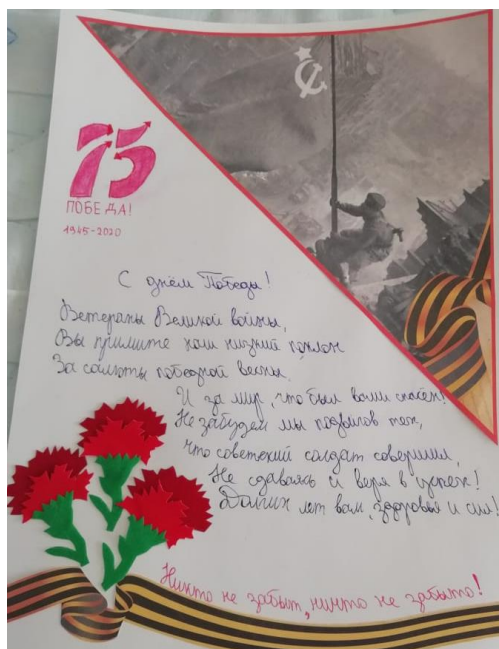 75
ПОБЕДА!
1945-2020
С днём Победы!
Ветераны Великой войны,
Вы примите наш низкий поклон
За салюты победной весны,
И за мир, что был вами спасён!
Не забудем мы подвигов тех,
Что советский солдат совершил,
Не сдаваясь и веря в успех!
Долгих лет вам, здоровья и сил!
Никто не забыт, ничто не забыто!